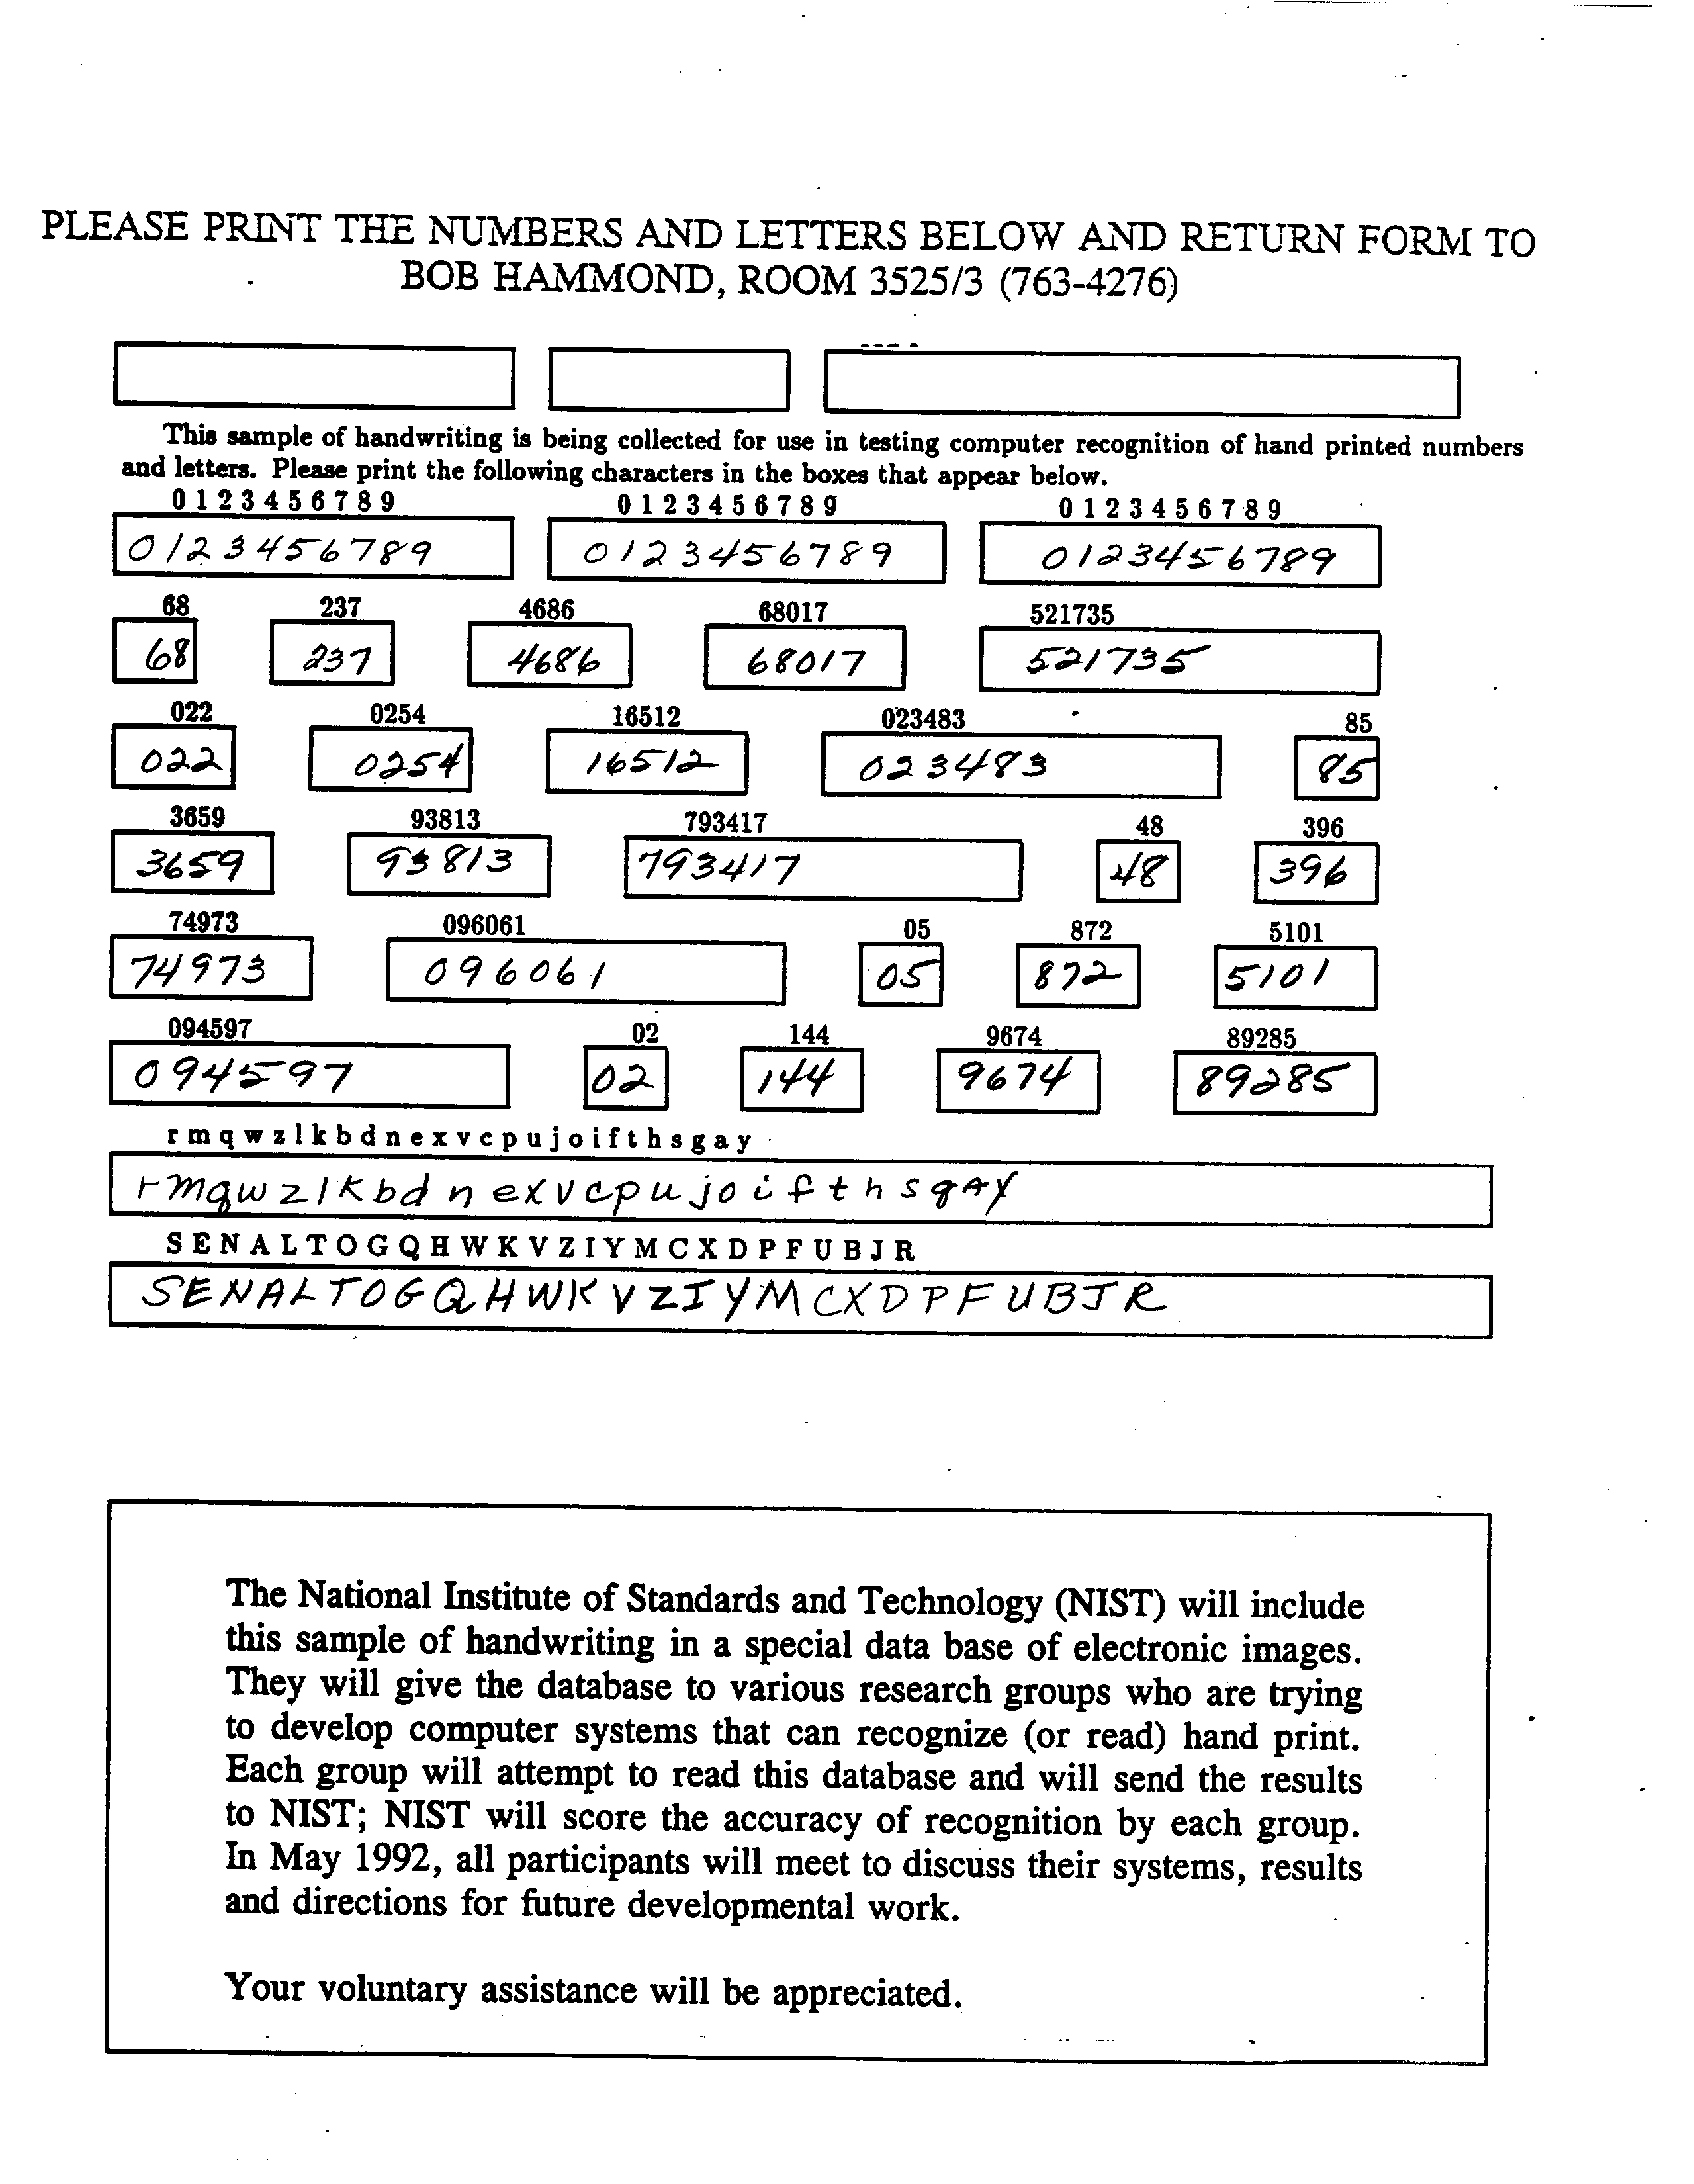 PLEASE PRINT THE NUMBERS AND LETTERS BELOW AND RETURN FORM TO
BOB HAMMOND, ROOM 3525/3 (763-4276)
This sample of handwriting is being collected for use in testing computer recognition of hand printed numbers
and letters. Please print the following characters in the boxes that appear below.
0 1 2 3 4 5 6 7 8 9 0 1 2 3 4 5 6 7 8 9 0 1 2 3 4 5 6 7 8 9
0123456789 0123456789 0123456789
68 237 4686 68017 521735
68 237 4686 68017 521735
022 0254 16512 023483 85
022 0254 16512 023483 85
3659 93813 793417 48 396
3659 93813 793417 48 396
74973 096061 05 872 5101
74973 096061 05 872 5101
094597 02 144 9674 89285
094597 02 144 9674 89285
r m q w z l k b d n e x v c p u j o i f t h s g a y
rmqwzlkbdnexvcpujoifthsgay
S E N A L T O G Q H W K V Z I Y M C X D P F U B J R
SENALTOGQHWKVZIYMCXDPFUBJR
The National Institute of Standards and Technology (NIST) will include
this sample of handwriting in a special data base of electronic images.
They will give the database to various research groups who are trying
to develop computer systems that can recognize (or read) hand print.
Each group will attempt to read this database and will send the results
to NIST; NIST will score the accuracy of recognition by each group.
In May 1992, all participants will meet to discuss their systems, results
and directions for future developmental work.
Your voluntary assistance will be appreciated.